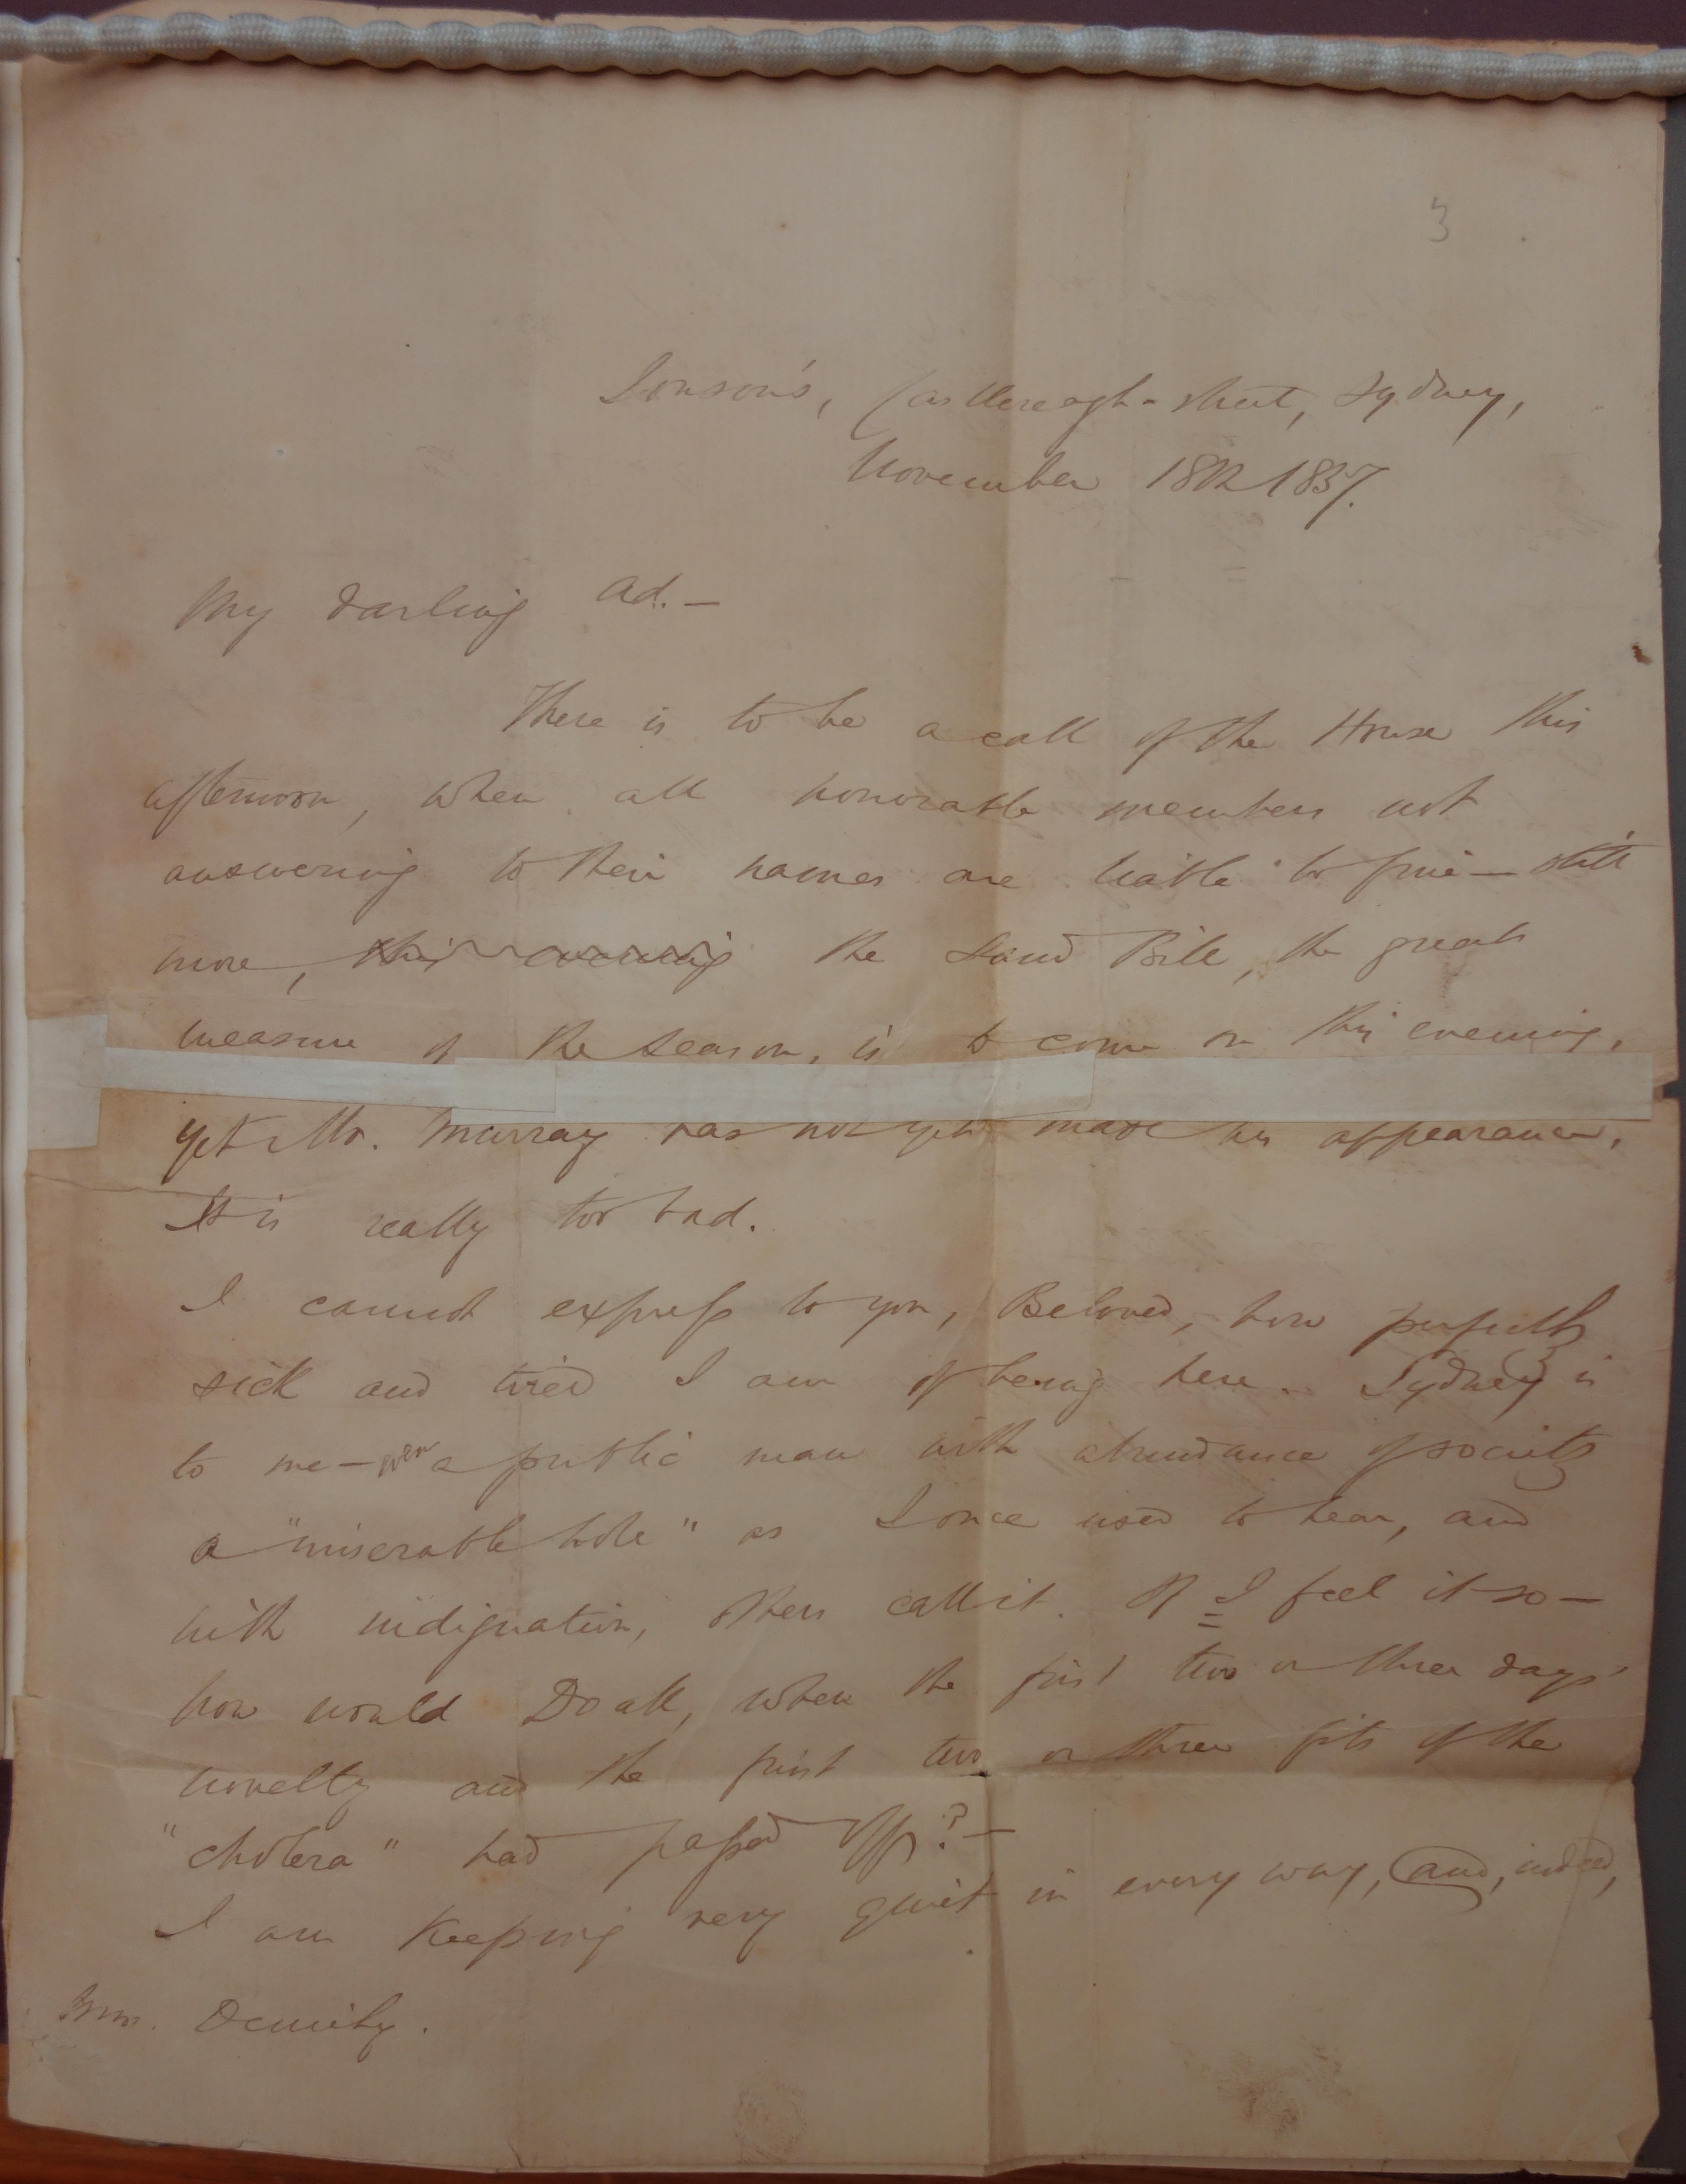 3
Castlereagh-street, Sydney,
November 18th 1857.
My darling Ad. —
There is to be a call of the House this
afternoon, when all honorable members not
answering to their names are liable to fine — still
more, this evening the Land Bill, the great
measure of the season, is to come on this evening,
yet Mr. Murray has not yet made his appearance.
It is really too bad.
I cannot express to you, Beloved, how perfectly
sick and tired I am of being here. Sydney is
to me — even a public man with abundance of society
a "miserable hole" as I once used to hear, and
with indignation, others call it. If I feel it so —
how would Do all, when the first two or three days'
novelty and the first two or three fits of the
"cholera" had passed off? —
I am keeping very quiet in every way, and, indeed,
Mrs. Deniehy.